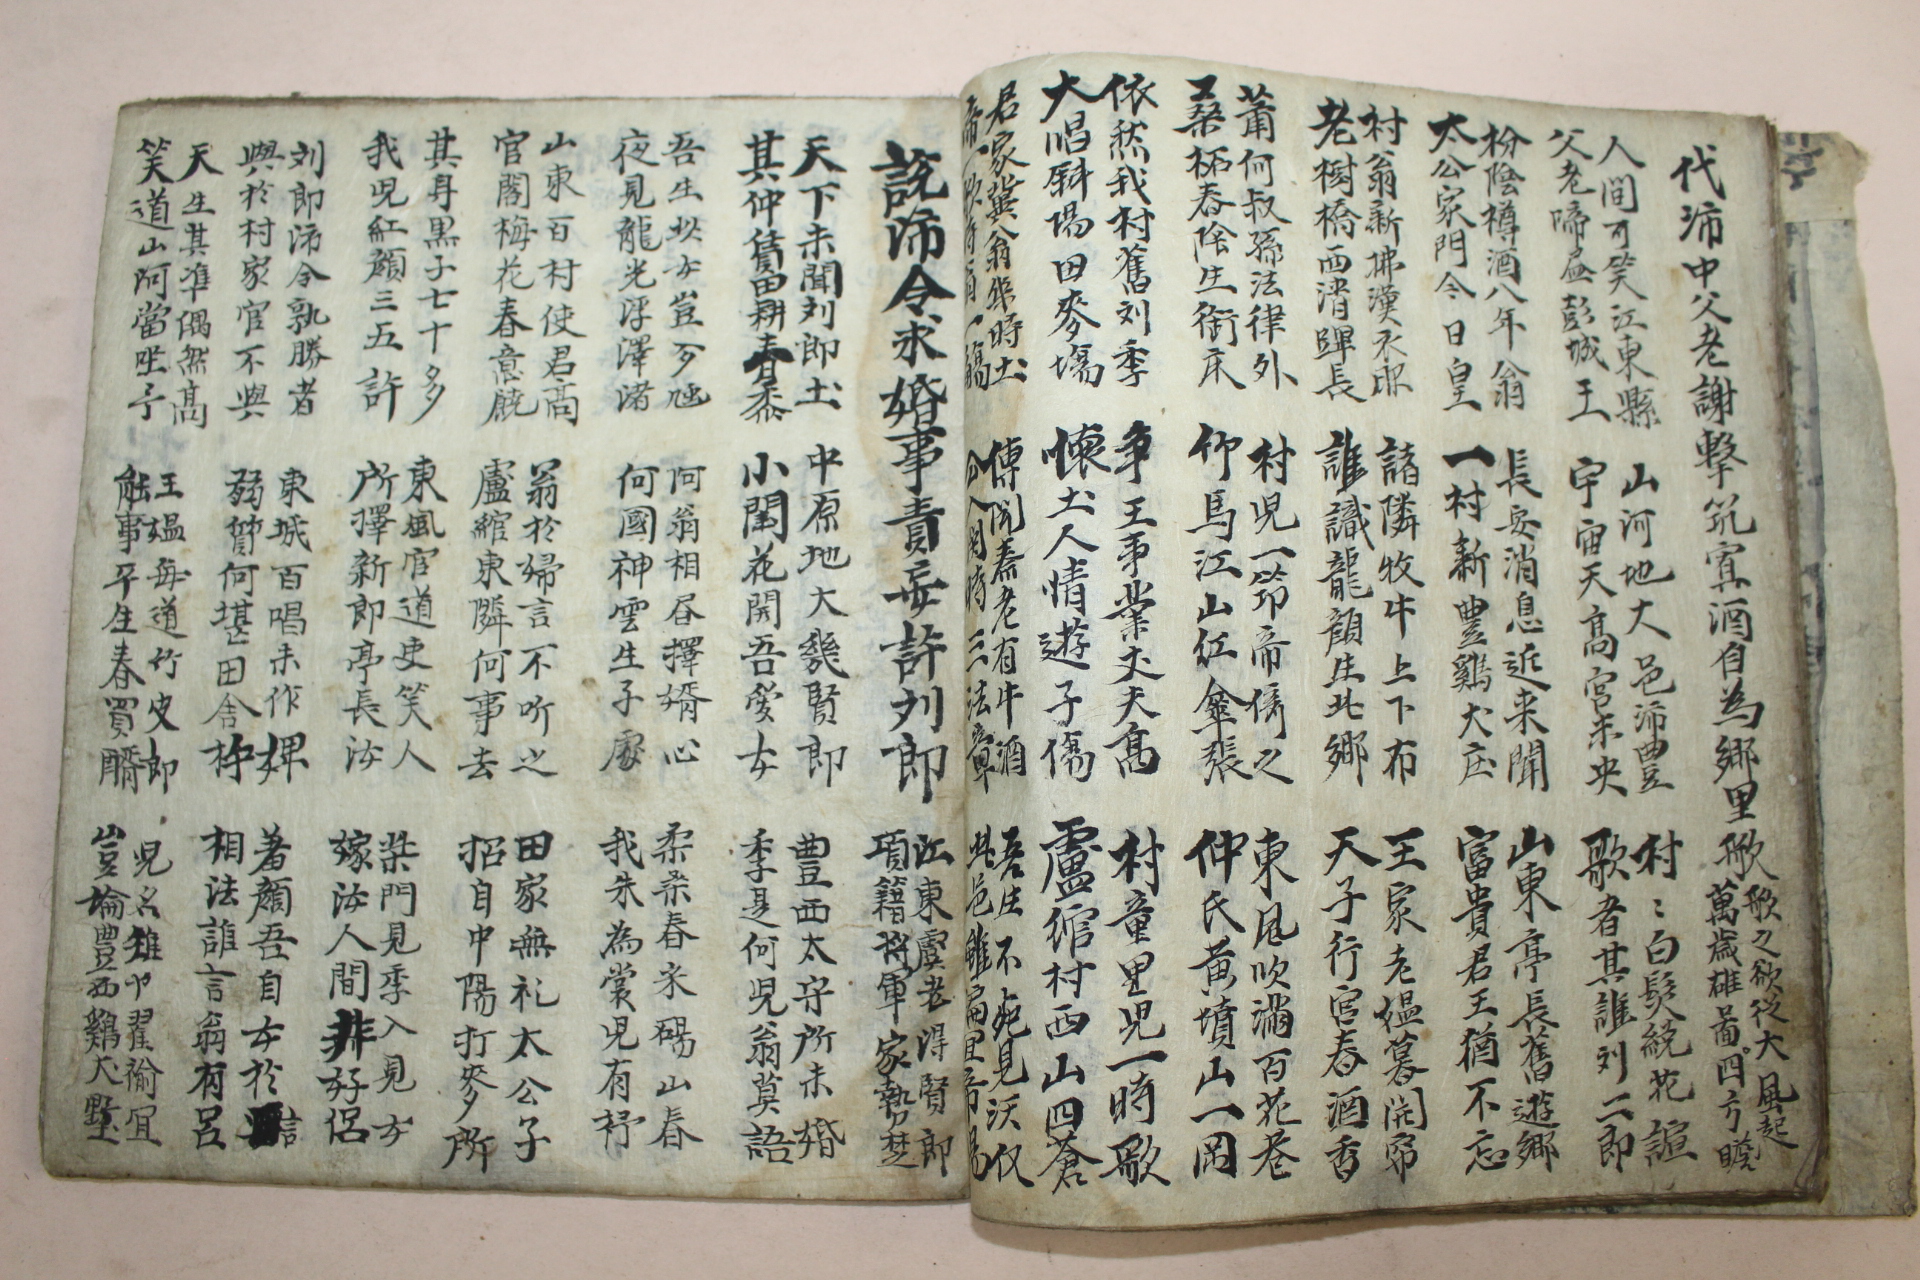 代沛中父老謝擊筑寘酒自為鄉里歌
歌之欲從大風起
萬歲雄圖四方瞻
人間可笑江東縣
父老啼盡彭城王
山河地大邑沛豊
宇宙天高宮未央
村〻白髮統花諠
歌者其誰刘二郎
枌陰樽酒八年翁
太公家門今日皇
長安消息近来聞
一村新豊鷄犬庄
山東亭長舊遊鄉
富貴君王猶不忘
村翁新拂漢衣
老樹橋西渚暉長
諸隣牧牛上下布
誰識龍顔生此鄉
王家老媼暮開帘
天子行宮春酒香
蕭何叔孫法律外
桑柘春陰生衙床
村児一笻帝僑之
竹馬江山紅傘張
東風吹満百花巷
仲氏黄墳山一岡
依然我村舊刘季
大唱斜陽田麥塲
争王事業丈夫高
懷土人情遊子傷
村童里児一時歌
盧綰村西山四蒼
君家翁時土
帝一歌時有一觴
傳聞秦老有牛酒
公入関時三法章
吾生不死見沃
此邑雖扁里帝
説沛令求婚事責妄許刘郎
江東虞老得賢郎
項籍將軍家勢楚
天下未聞刘郎土
其仲賃田耕春黍
中原地大幾賢郎
小閨花開吾愛女
豊西太守所未婚
季是何児翁莫語
吾生此女豈可
夜見龍光浮澤渚
何翁相昏擇婿心
何國神雲生子處
柔桑春米碭山春
我朱為裳児有杼
山東百村使君高
官閣梅花春意饒
翁於婦言不听之
盧綰東隣何事去
田家無礼太公子
招自中陽打麥所
其身黒子七十多
我児紅顔三五許
東風官道吏笑人
所擇新郎亭長汝
柴門見季入見女
嫁汝人間非好侶
刘郎沛令孰勝者
與於村家官不與
東城百唱未作婢
弱質何堪田舎杵
著顔吾自女於言
相法誰言翁有呂
天生其凖偶然高
笑道山河當坐予
王媼每道竹皮郎
能事平生春買醑
児名雉也翟褕宜
豈論豊西鷄犬墅